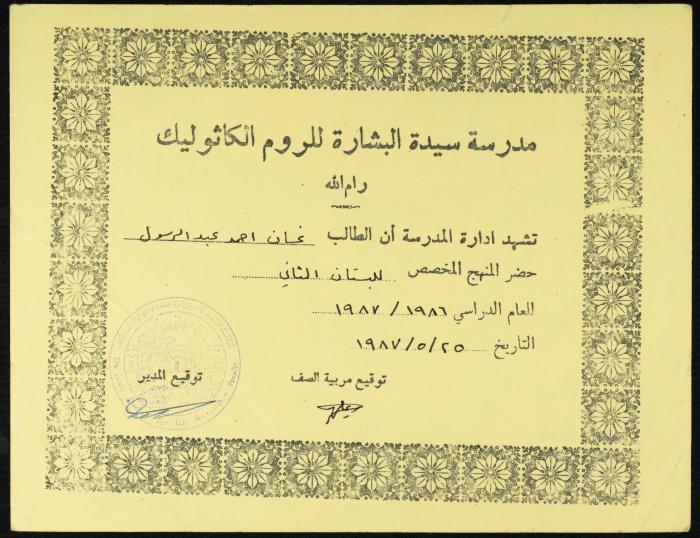 مدرسة سيدة البشارة للروم الكاثوليك
رام الله
تشهد ادارة المدرسة أن الطالب غسان احمد عبد الرسول
حضر المنهج المخصص للبستان الثاني
للعام الدراسي ١٩٨٦ / ١٩٨٧
التاريخ ٢٥ / ٥ / ١٩٨٧
توقيع مربية الصف
توقيع المدير